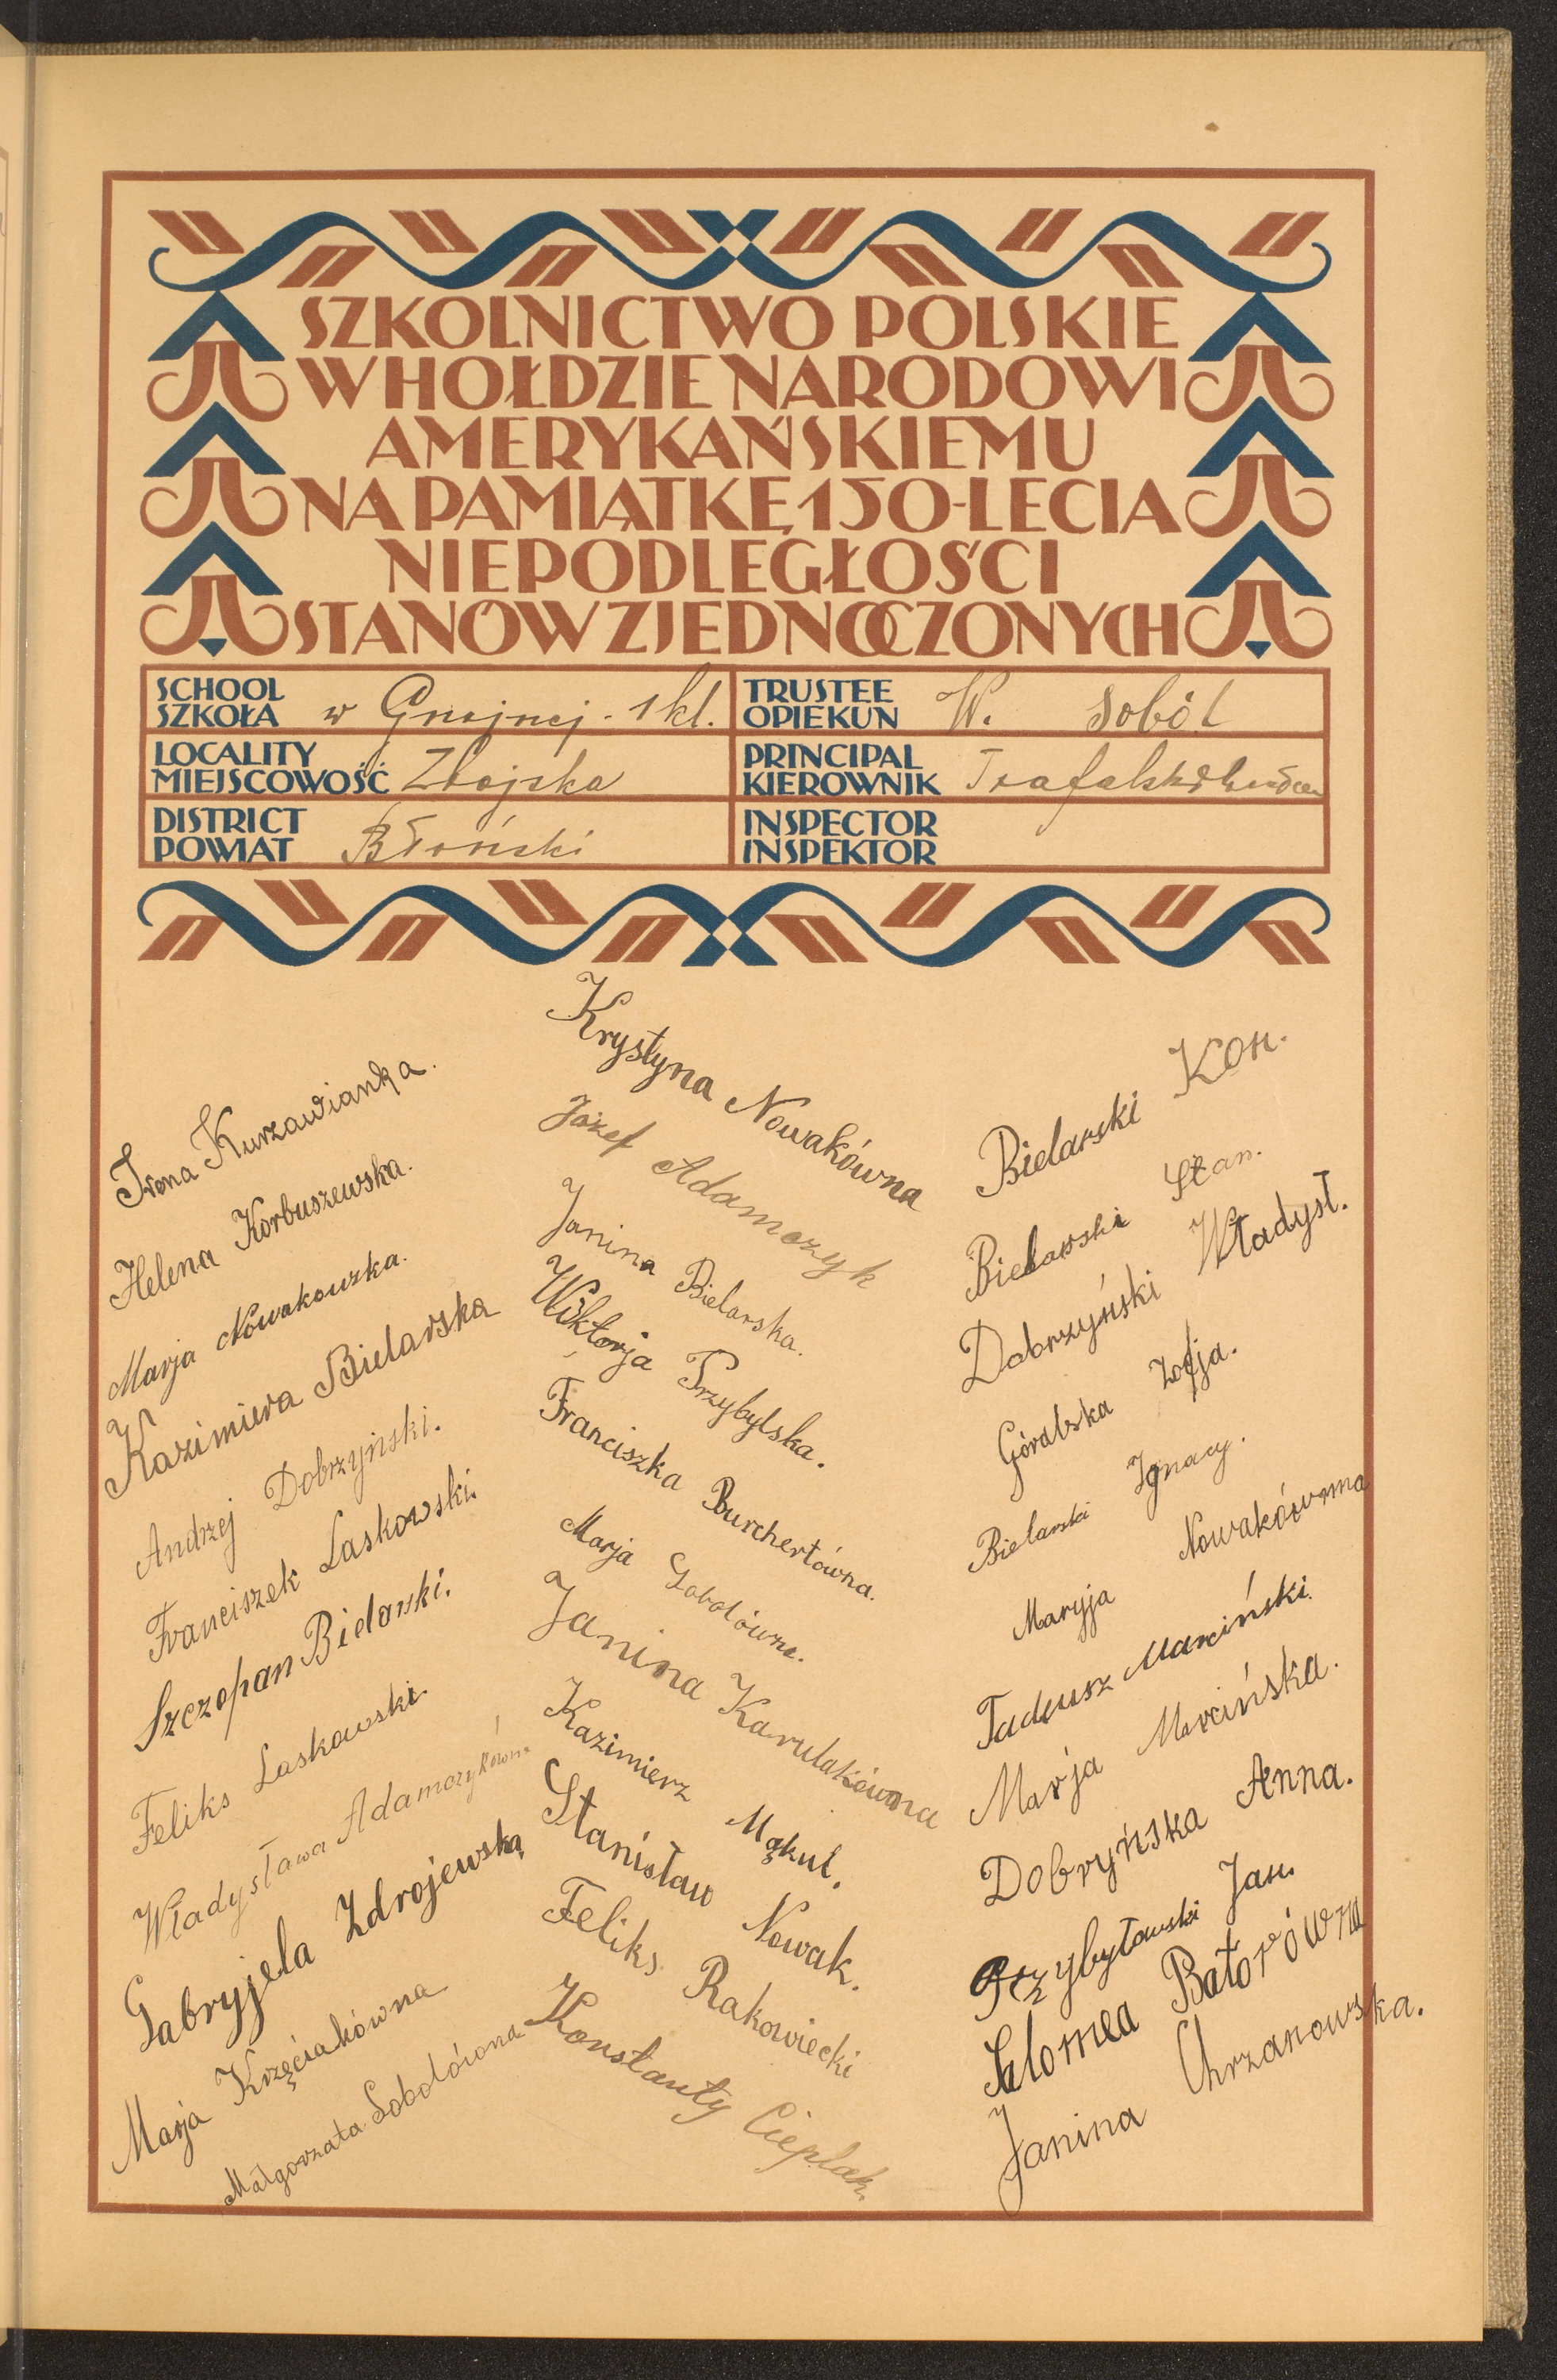 SZKOLNICTWO POLSKIE
W HOŁDZIE NARODOWI
AMERYKAŃSKIEMU
NA PAMIĄTKĘ 150-LECIA
NIEPODLEGŁOŚCI
STANÓW ZJEDNOCZONYCH
SCHOOL
SZKOŁA w Gnojnej. 1 kl.
TRUSTEE
OPIEKUN W. Soból
LOCALITY
MIEJSCOWOŚĆ
PRINCIPAL
KIEROWNIK
DISTRICT
POWIAT Błoński
INSPECTOR
INSPEKTOR
Irena Kurzawianka.
Helena Korbuszewska.
Marja Nowakowska.
Kazimiera Bielarska
Andrzej Dobrzyński.
Franciszek Laskowski.
Szczopan Bielarski.
Feliks Laskowski.
Władysława Adamczykówna
Gabryjela Zdrojewską
Marja Krzęciakówna
Małgorzata Sobolówna
Krystyna Nowakówna
Józef Adamczyk
Janina Bielarska.
Wiktorja Przybylska.
Franciszka Burchertówna.
Marja Sobolówna.
Janina Karulakówna
Kazimierz Mąkul.
Stanisław Nowak.
Feliks Rakowiecki
Konstanty Cieplak.
Bielarski Kon.
Bielarski Stan.
Dobrzyński Władysł.
Góralska Zofja.
Bielarski Ignacy.
Maryja Nowakówna
Tadeusz Marciński.
Marja Marcińska.
Dobryńska Anna.
Przybyławski Jan.
Salomea Batorówna
Janina Chrzanowska.